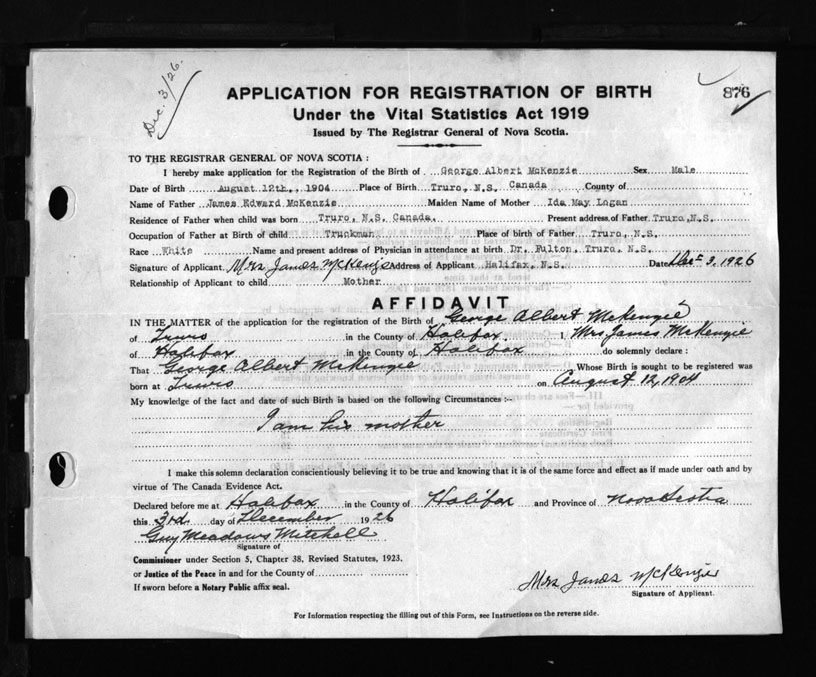 Dec. 3/26.
876
APPLICATION FOR REGISTRATION OF BIRTH
Under the Vital Statistics Act 1919
Issued by The Registrar General of Nova Scotia.
TO THE REGISTRAR GENERAL OF NOVA SCOTIA :
I hereby make application for the Registration of the Birth of George Albert McKenzie Sex Male
Date of Birth August 12th, 1904 Place of Birth Truro, N.S. Canada County of
Name of Father James Edward McKenzie Maiden Name of Mother Ida May Logan
Residence of Father when child was born Truro, N.S. Canada. Present address of Father Truro, N.S.
Occupation of Father at Birth of child Truckman Place of Birth of Father Truro, N.S.
Race White Name and present address of Physician in attendance at birth Dr. Fulton, Truro, N.S.
Signature of Applicant Mrs James McKenzie Address of Applicant Halifax, N.S. Date Dec 3, 1926
Relationship of Applicant to child Mother
AFFIDAVIT
IN THE MATTER of the application for the registration of the Birth of George Albert McKenzie
of Truro in the County of Halifax. I, Mrs James McKenzie
of Halifax in the County of Halifax do solemnly declare :
That George Albert McKenzie Whose Birth is sought to be registered was
born at Truro on August 12, 1904
My knowledge of the fact and date of such Birth is based on the following Circumstances :-
I am his mother
I make this solemn declaration conscientiously believing it to be true and knowing that it is of the same force and effect as if made under oath and by
virtue of The Canada Evidence Act.
Declared before me at Halifax in the County of Halifax and Province of Nova Scotia
this 3rd day of December 1926
Guy Meadows Mitchell
Signature of
Commissioner under Section 5, Chapter 38, Revised Statutes, 1923.
or Justice of the Peace in and for the County of
If sworn before a Notary Public affix seal.
Mrs James McKenzie
Signature of Applicant.
For Information respecting the filling out of this Form, see Instructions on the reverse side.